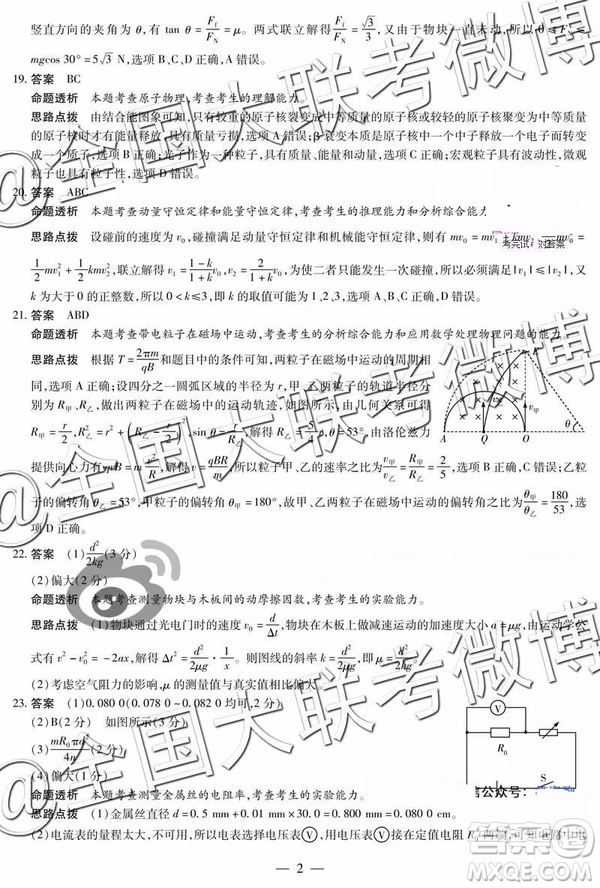 竖直方向的夹角为 θ,有 tan θ = F_f/F_N = μ。两式联立解得 F_f/F_N = √3/3,又由于物块一直未动,所以 0 ≤ F_f ≤
mgcos 30° = 5√3 N,选项 B、C、D 正确,A 错误。
19. 答案 BC
命题透析 本题考查原子物理,考查考生的理解能力。
思路点拨 由结合能图象可知,只有较重的原子核裂变成中等质量的原子核或较轻的原子核聚变为中等质量
的原子核时才有能量释放,具有质量亏损,选项 A 错误;β 衰变本质是原子核中一个中子释放一个电子而转变
成一个质子,选项 B 正确;光子作为一种粒子,具有质量、能量和动量,选项 C 正确;宏观粒子也具有波动性,微观
粒子也具有粒子性,选项 D 错误。
20. 答案 ABC
命题透析 本题考查动量守恒定律和能量守恒定律,考查考生的推理能力和分析综合能力。
思路点拨 设碰前的速度为 v₀,碰撞满足动量守恒定律和机械能守恒定律,则有 mv₀ = mv₁ + kmv₂
1/2 mv₁² + 1/2 kmv₂²,联立解得 v₁ = (1-k)/(1+k) v₀,v₂ = 2/(1+k) v₀,为使二者只发生一次正碰,需满足 |v₁| ≤ |v₂|,又
k 为大于 0 的正整数,所以 0 < k ≤ 3,即 k 的可能值为 1、2、3,选项 A、B、C 正确,D 错误。
21. 答案 ABD
命题透析 本题考查带电粒子在磁场中运动,考查考生的分析综合能力和应用数学处理物理问题的能力。
思路点拨 根据 T = 2πm/qB 和题目的条件可知,两粒子在磁场中运动的周期相
同,选项 A 正确;设四分之一圆弧区域的半径为 r,甲、乙两粒子的轨道半径分
别为 R甲、R乙,做出两粒子在磁场中的运动轨迹,如图所示,由几何关系可得
R甲 = r/2,R乙 = 5/4 r,θ = 53°,由洛伦兹力
提供向心力有 qvB = m v²/R,解得 v = qBR/m,所以粒子甲、乙的速率之比为 v甲/v乙 = R甲/R乙 = 2/5,选项 B 正确;乙粒
子的偏转角 θ乙 = 53°,甲粒子的偏转角 θ甲 = 180°,故甲、乙两粒子在磁场中运动的偏转角之比为 θ甲/θ乙 = 180/53,选
项 D 正确。
22. 答案 (1) d²/2kg (3 分)
(2)偏大(2 分)
命题透析 本题考查测量物块与木板间的动摩擦因数,考查考生的实验能力。
思路点拨 (1)物块通过光电门时的速度 v₀ = d/Δt,物块在木板上做匀减速运动的加速度大小 a = μg,由运动学公
式有 v² - v₀² = -2ax,解得 Δt² = d²/2μg · 1/x。则图线的斜率 k = d²/2μg,
(2)考虑空气阻力的影响,μ 的测量值与真实值相比偏大。
23. 答案 (1)0.080 0(0.078 0 ~ 0.082 0 均可)(2 分)
(2)B(2 分) 如图所示(3 分)
(3)
(4)偏大(2 分)
命题透析 本题考查测量金属丝的电阻率,考查考生的实验能力。
思路点拨 (1)金属丝直径 d = 0.5 mm + 0.01 mm × 30.0 = 0.800 mm = 0.080 0 cm。
(2)电流表的量程太大,不可行,所以用电压表选择电压表Ⓥ,用电压表Ⓥ接在定值电阻 R₀ 两端,可知电路中电
— 2 —
A Q O v甲
V R₀ S
@全国大联考微博
考完试,对答案
公众号:
答案圈
MXQE.COM